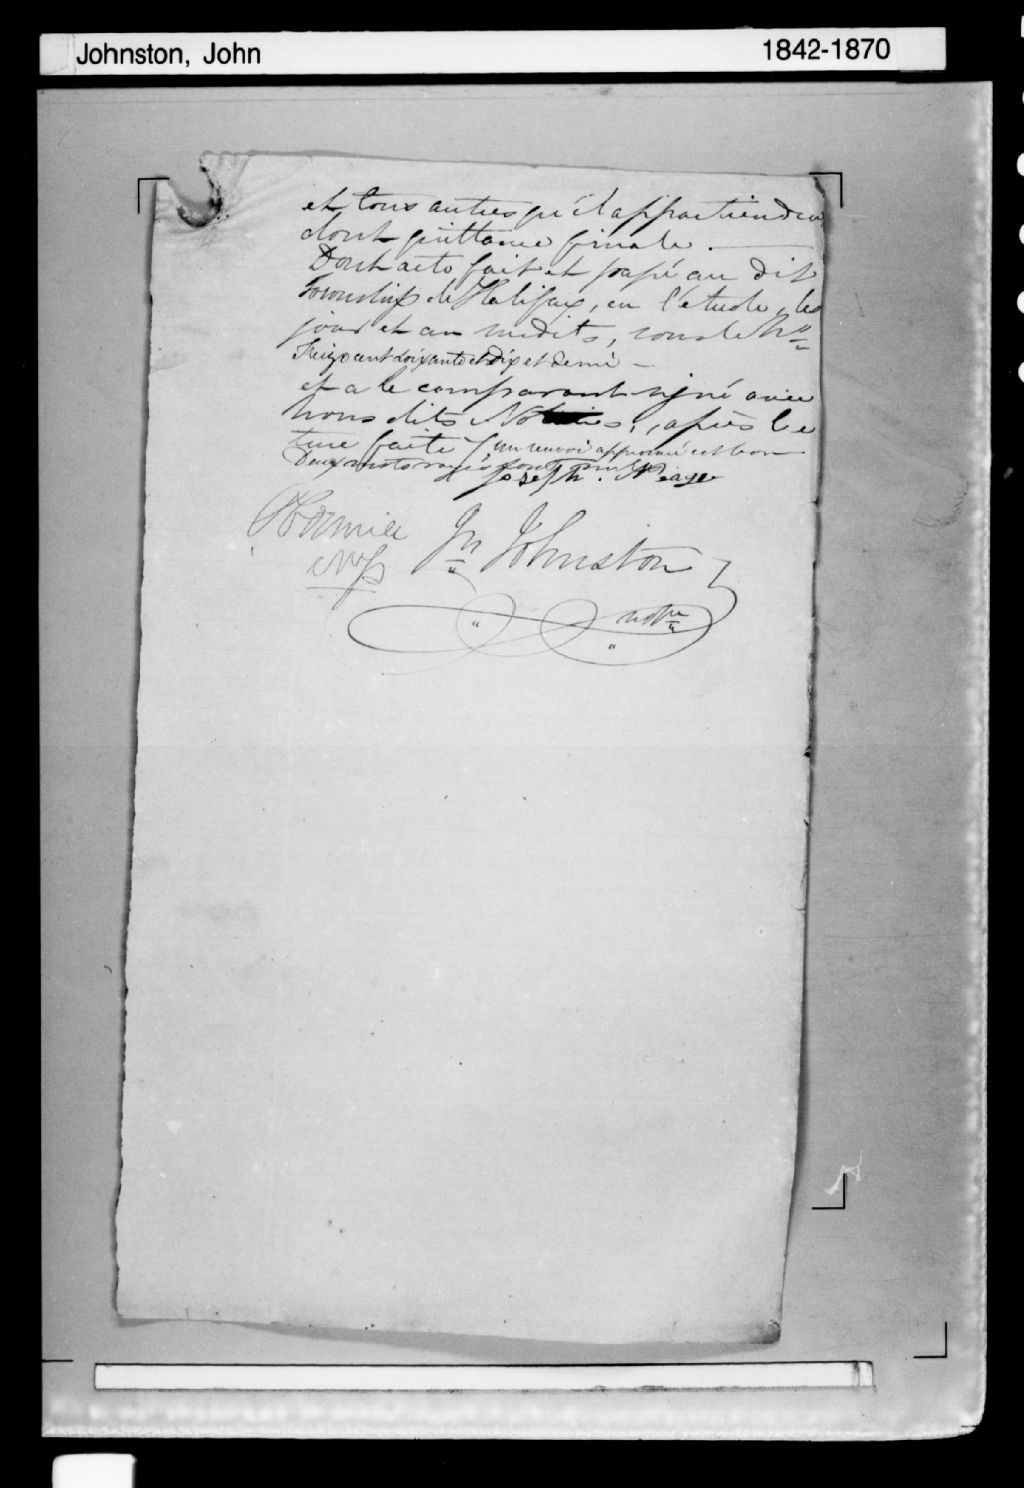 Johnston, John 1842-1870
et tous autres qu'il appartiendra
dont quittance finale.
Dont acte fait et passé au dit
Township de Halifax, en l'étude, les
jour et an susdits, sous le No
Treize cent soixante et dix et demi —
et a le comparant signé avec
Nous dits Notaires, après lec
ture faite / un renvoi approuvé est bon
Deux mots rayés sont nuls
Joseph
Jn Johnston
NP
notre